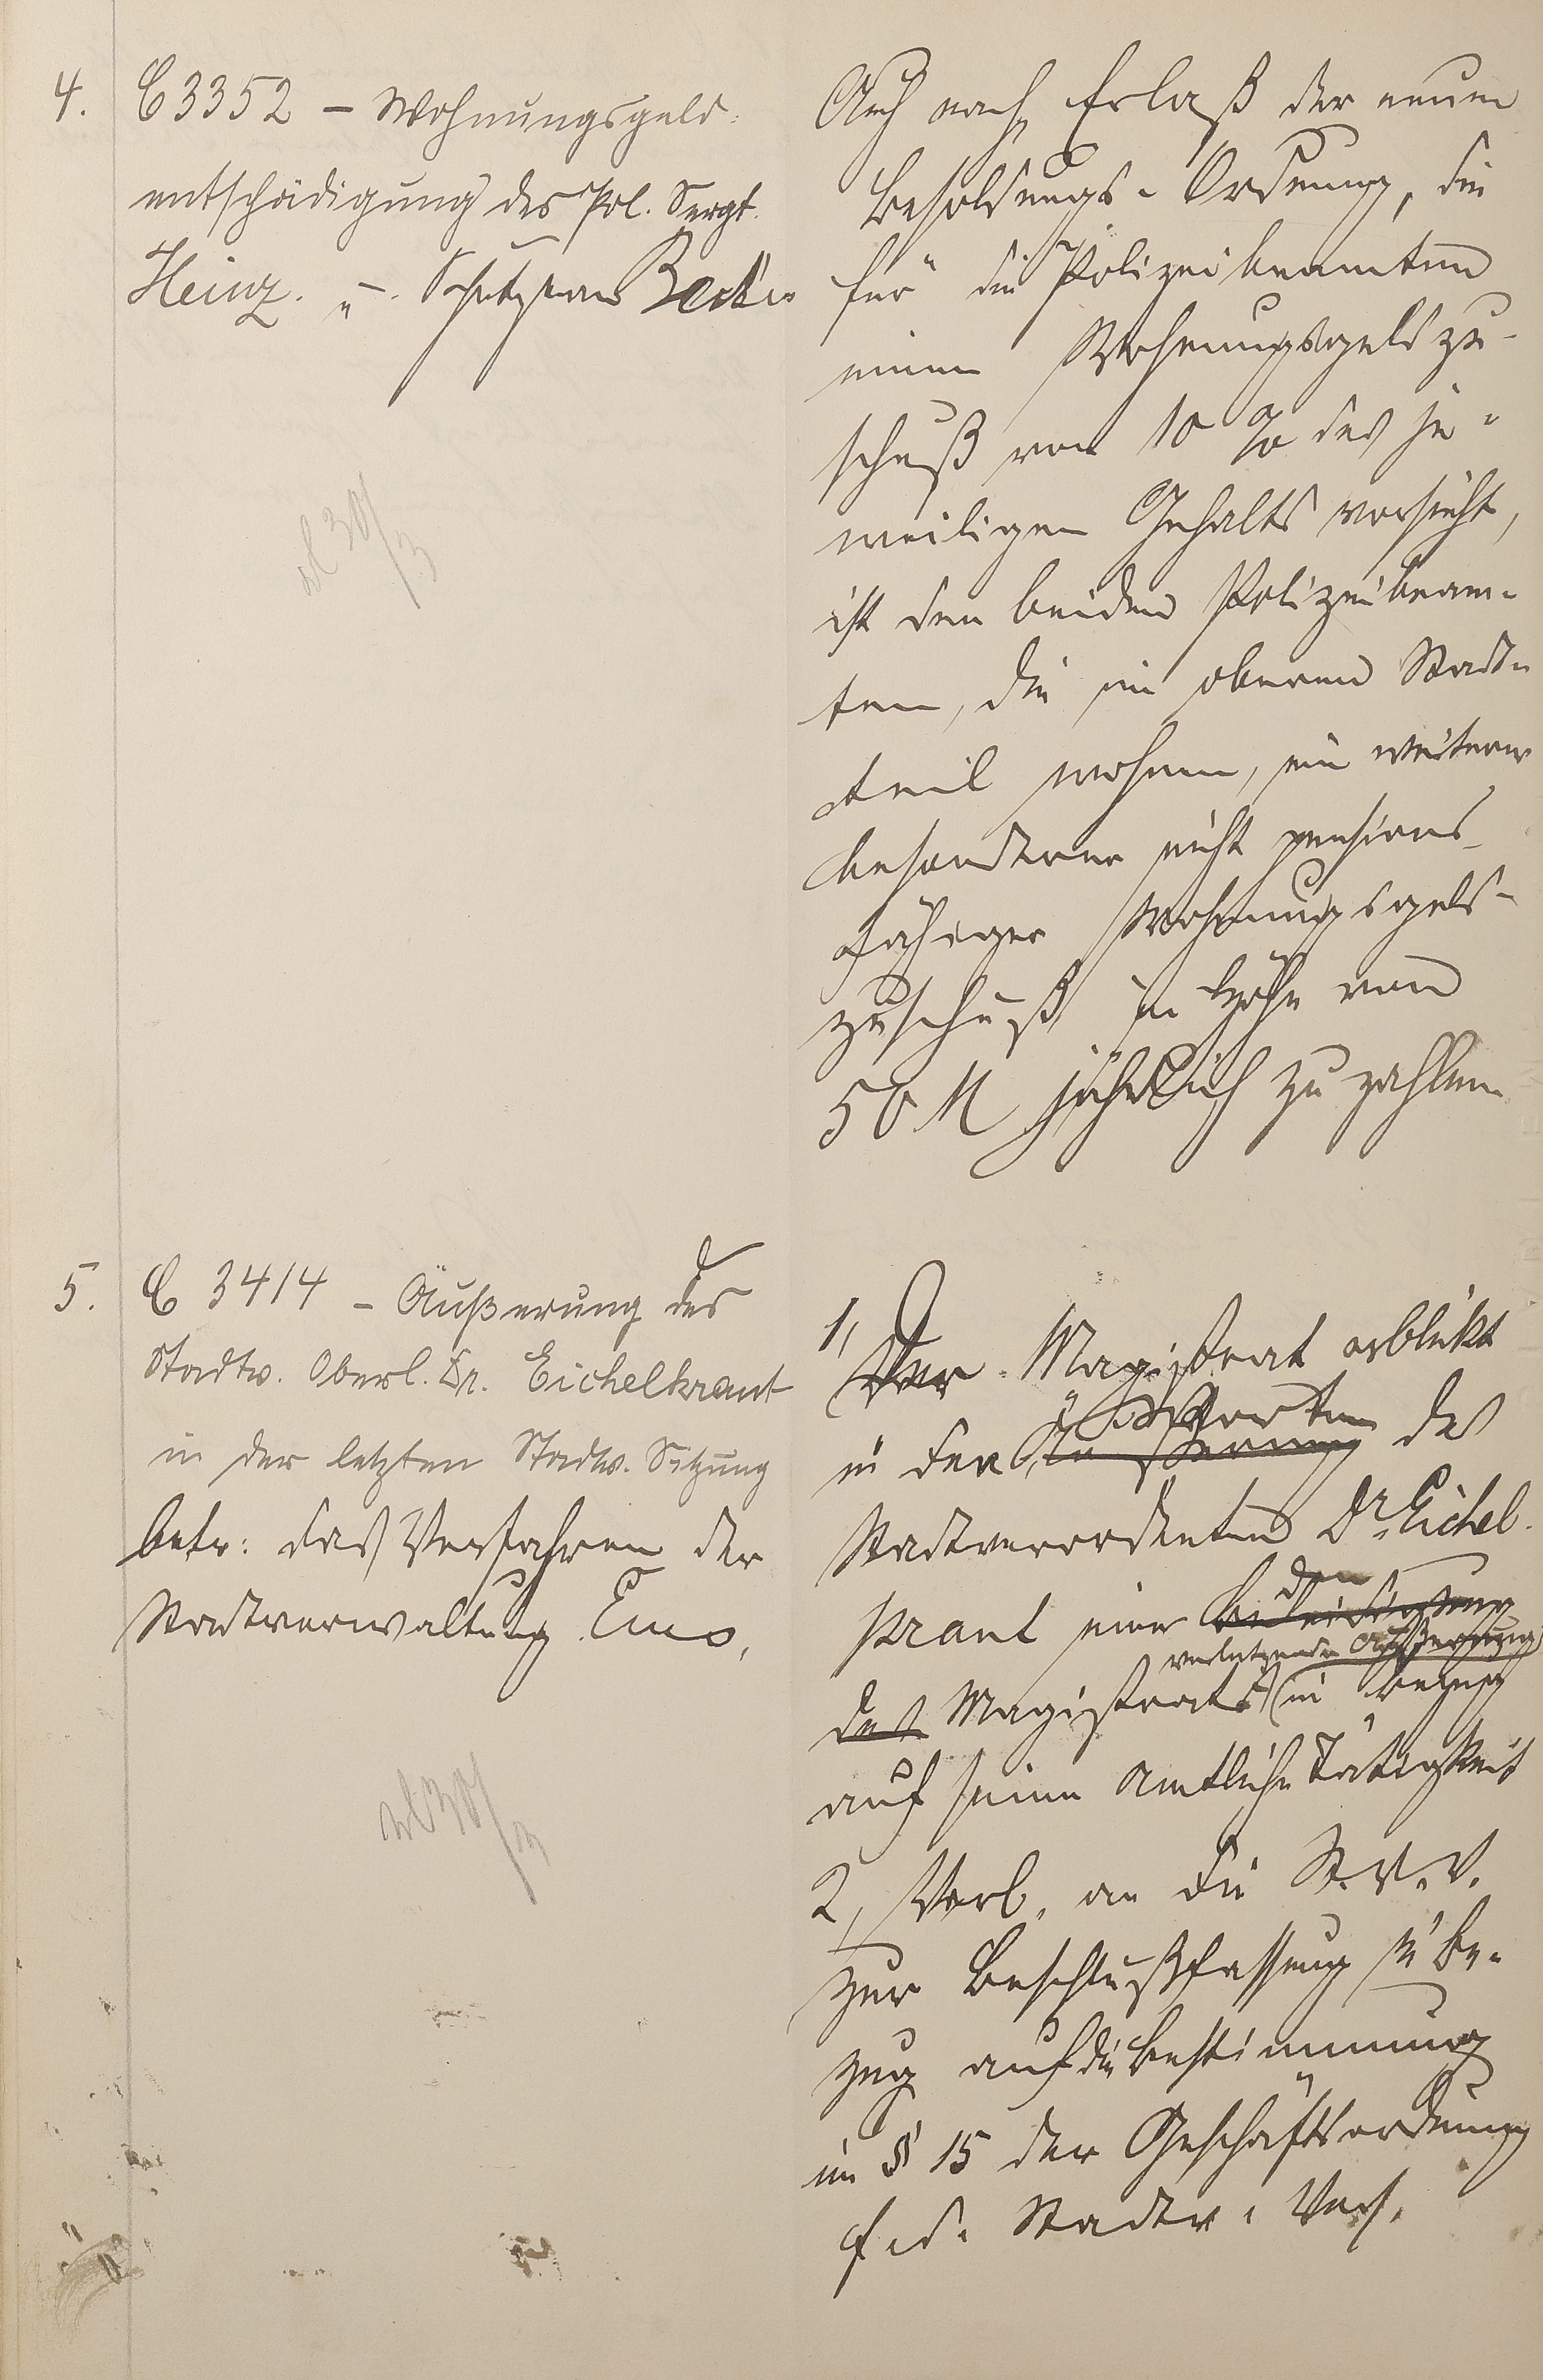 4.
C 3352 – Wohnungsgeld-
entschädigung des Pol. Sergt.
Heinz. u. Schutzmann Becker
Auch nach Erlaß der neuen
Besoldungs-Ordnung, die
für die Polizeibeamten
einen Wohnungsgeldzu-
schuß von 10 % des je-
weiligen Gehalts vorsieht,
ist den beiden Polizeibeam-
ten, die im oberen Stadt-
teil wohnen, ein weiterer
besonderer nicht pensions-
fähiger Wohnungsgeld-
zuschuß in Höhe von
50 M jährlich zu zahlen.
5.
C 3414 – Äußerung des
Stadtv. Oberl. Dr. Eichelkraut
in der letzten Stadtv. Sitzung
betr: das Verfahren der
Stadtverwaltung Ems,
1, Der Magistrat erblickt
in den Worten Äußerung des
Stadtverordneten Dr. Eichel-
kraut eine Beleidigung den
verletzende Äußerung
des Magistrats in Bezug
auf seine amtliche Tätigkeit
2, Vorl. an die St. V. V.
zur Beschlußfassung in Be-
zug auf die Bestimmung
im § 15 der Geschäftsordnung
f. d. Stadtv. Vers.